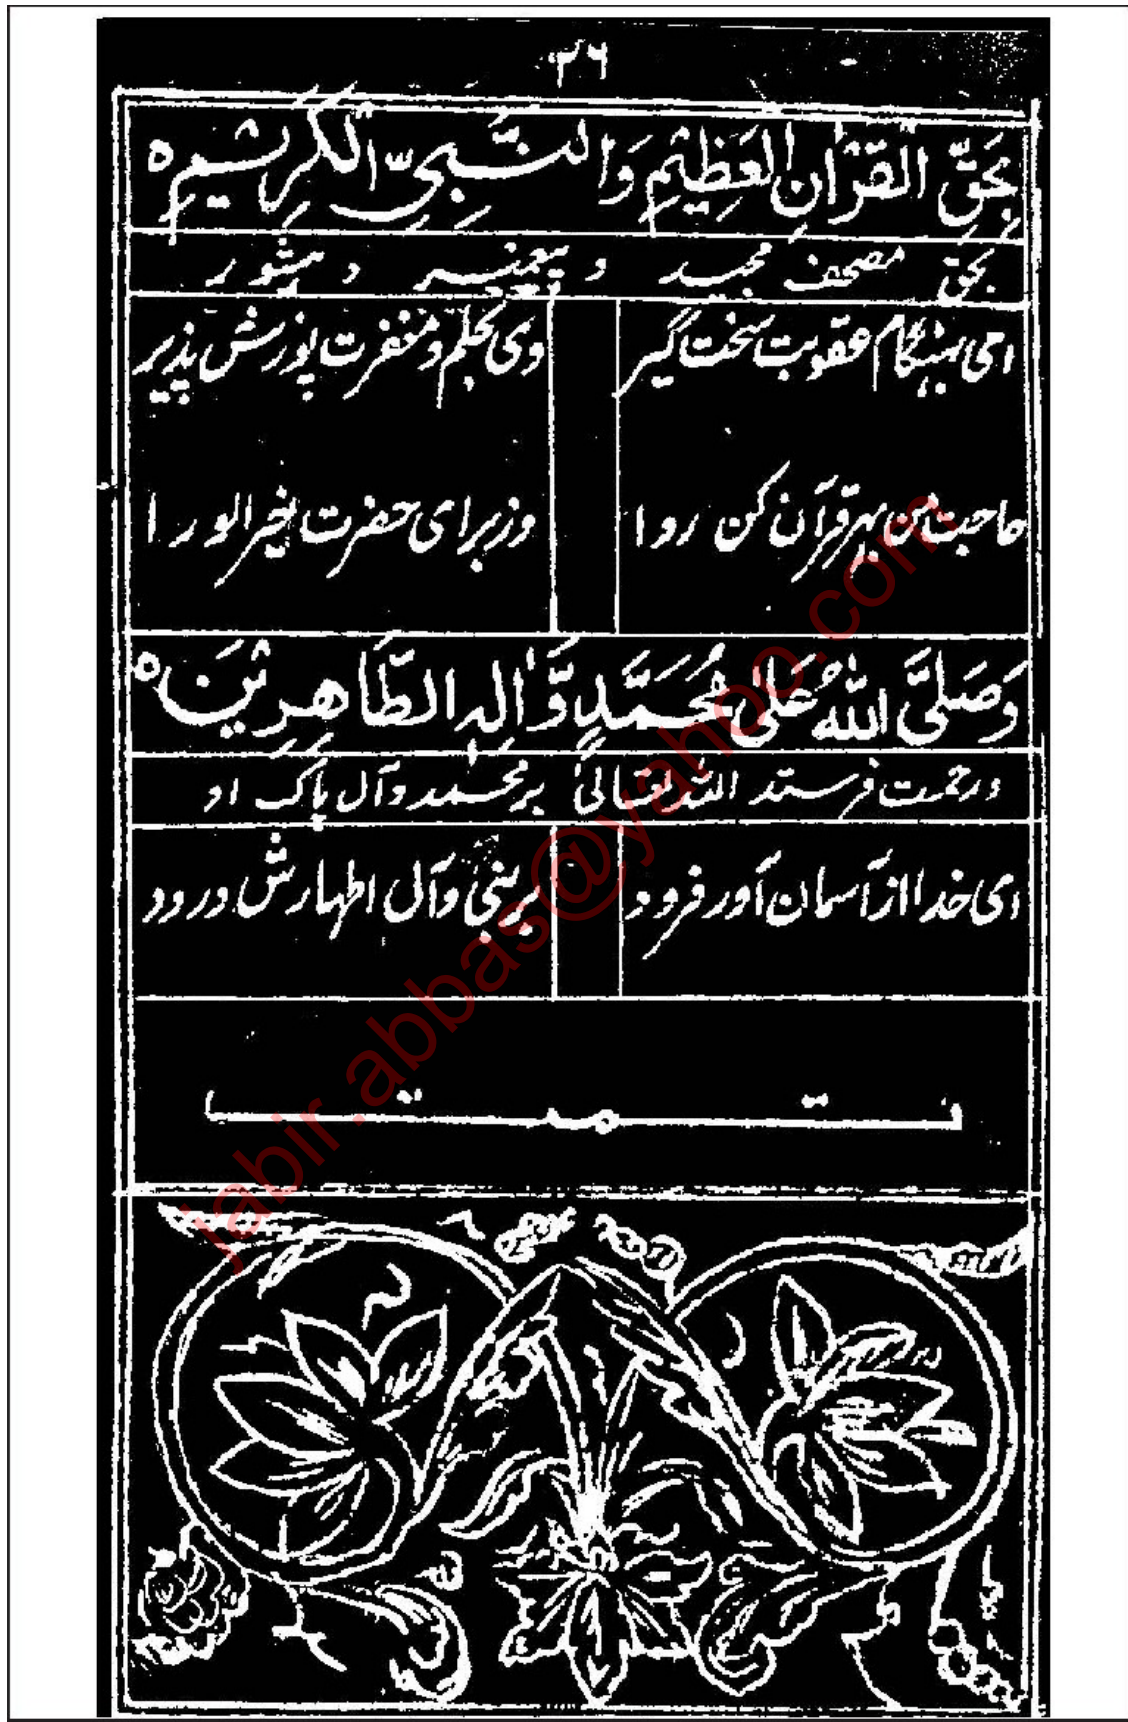 ۳۶
بِحَقِّ الْقُرْاٰنِ الْعَظِيْمِ وَالنَّبِيِّ الْكَرِيْمِ ہ
بحق مصحف مجید و پیغمبر و
ای بهنگام عقوبت سخت گیر وی بحلم و مغفرت پوزش پذیر
حاجت من بهر قرآن کن روا وز برای حضرت خیر الورا
وَصَلَّى اللّٰهُ عَلٰى مُحَمَّدٍ وَّاٰلِهِ الطَّاهِرِيْنَ ہ
ورحمت فرستد الله تعالیٰ بر محمد وآل پاک او
ای خدا از آسمان آور فرود بر نبی وآل اطهارش درود
jabir.abbas@yahoo.com